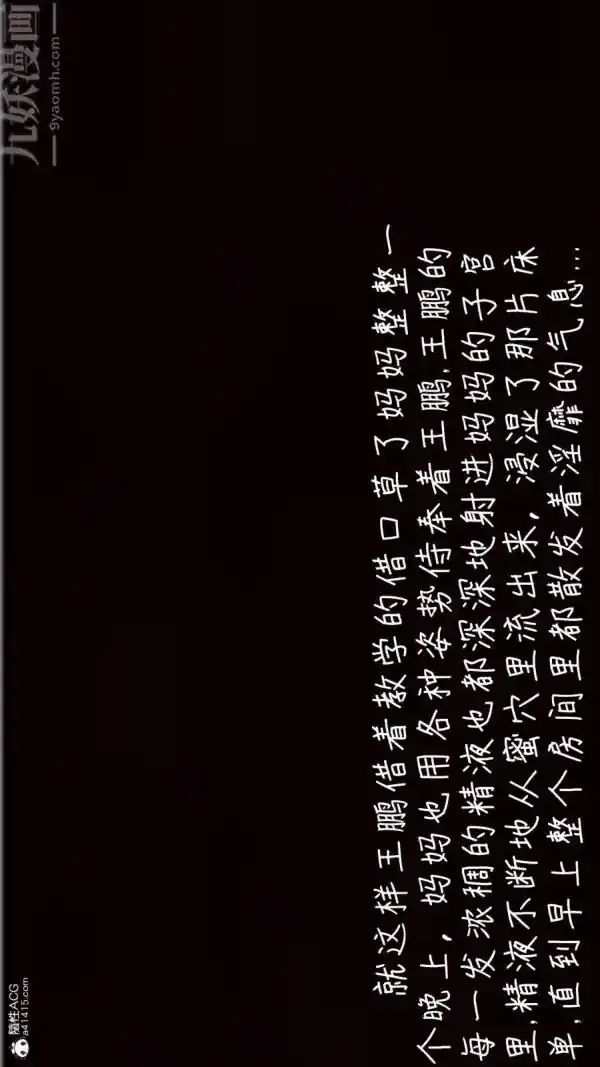 九妖漫画
9yaomh.com
就这样王鹏借着教学的借口草了妈妈整整一
个晚上，妈妈也用各种姿势侍奉着王鹏,王鹏的
每一发浓稠的精液也都深深地射进妈妈的子宫
里,精液不断地从蜜穴里流出来，浸湿了那片床
单,直到早上整个房间里都散发着淫靡的气息...
隨性ACG
a41415.com